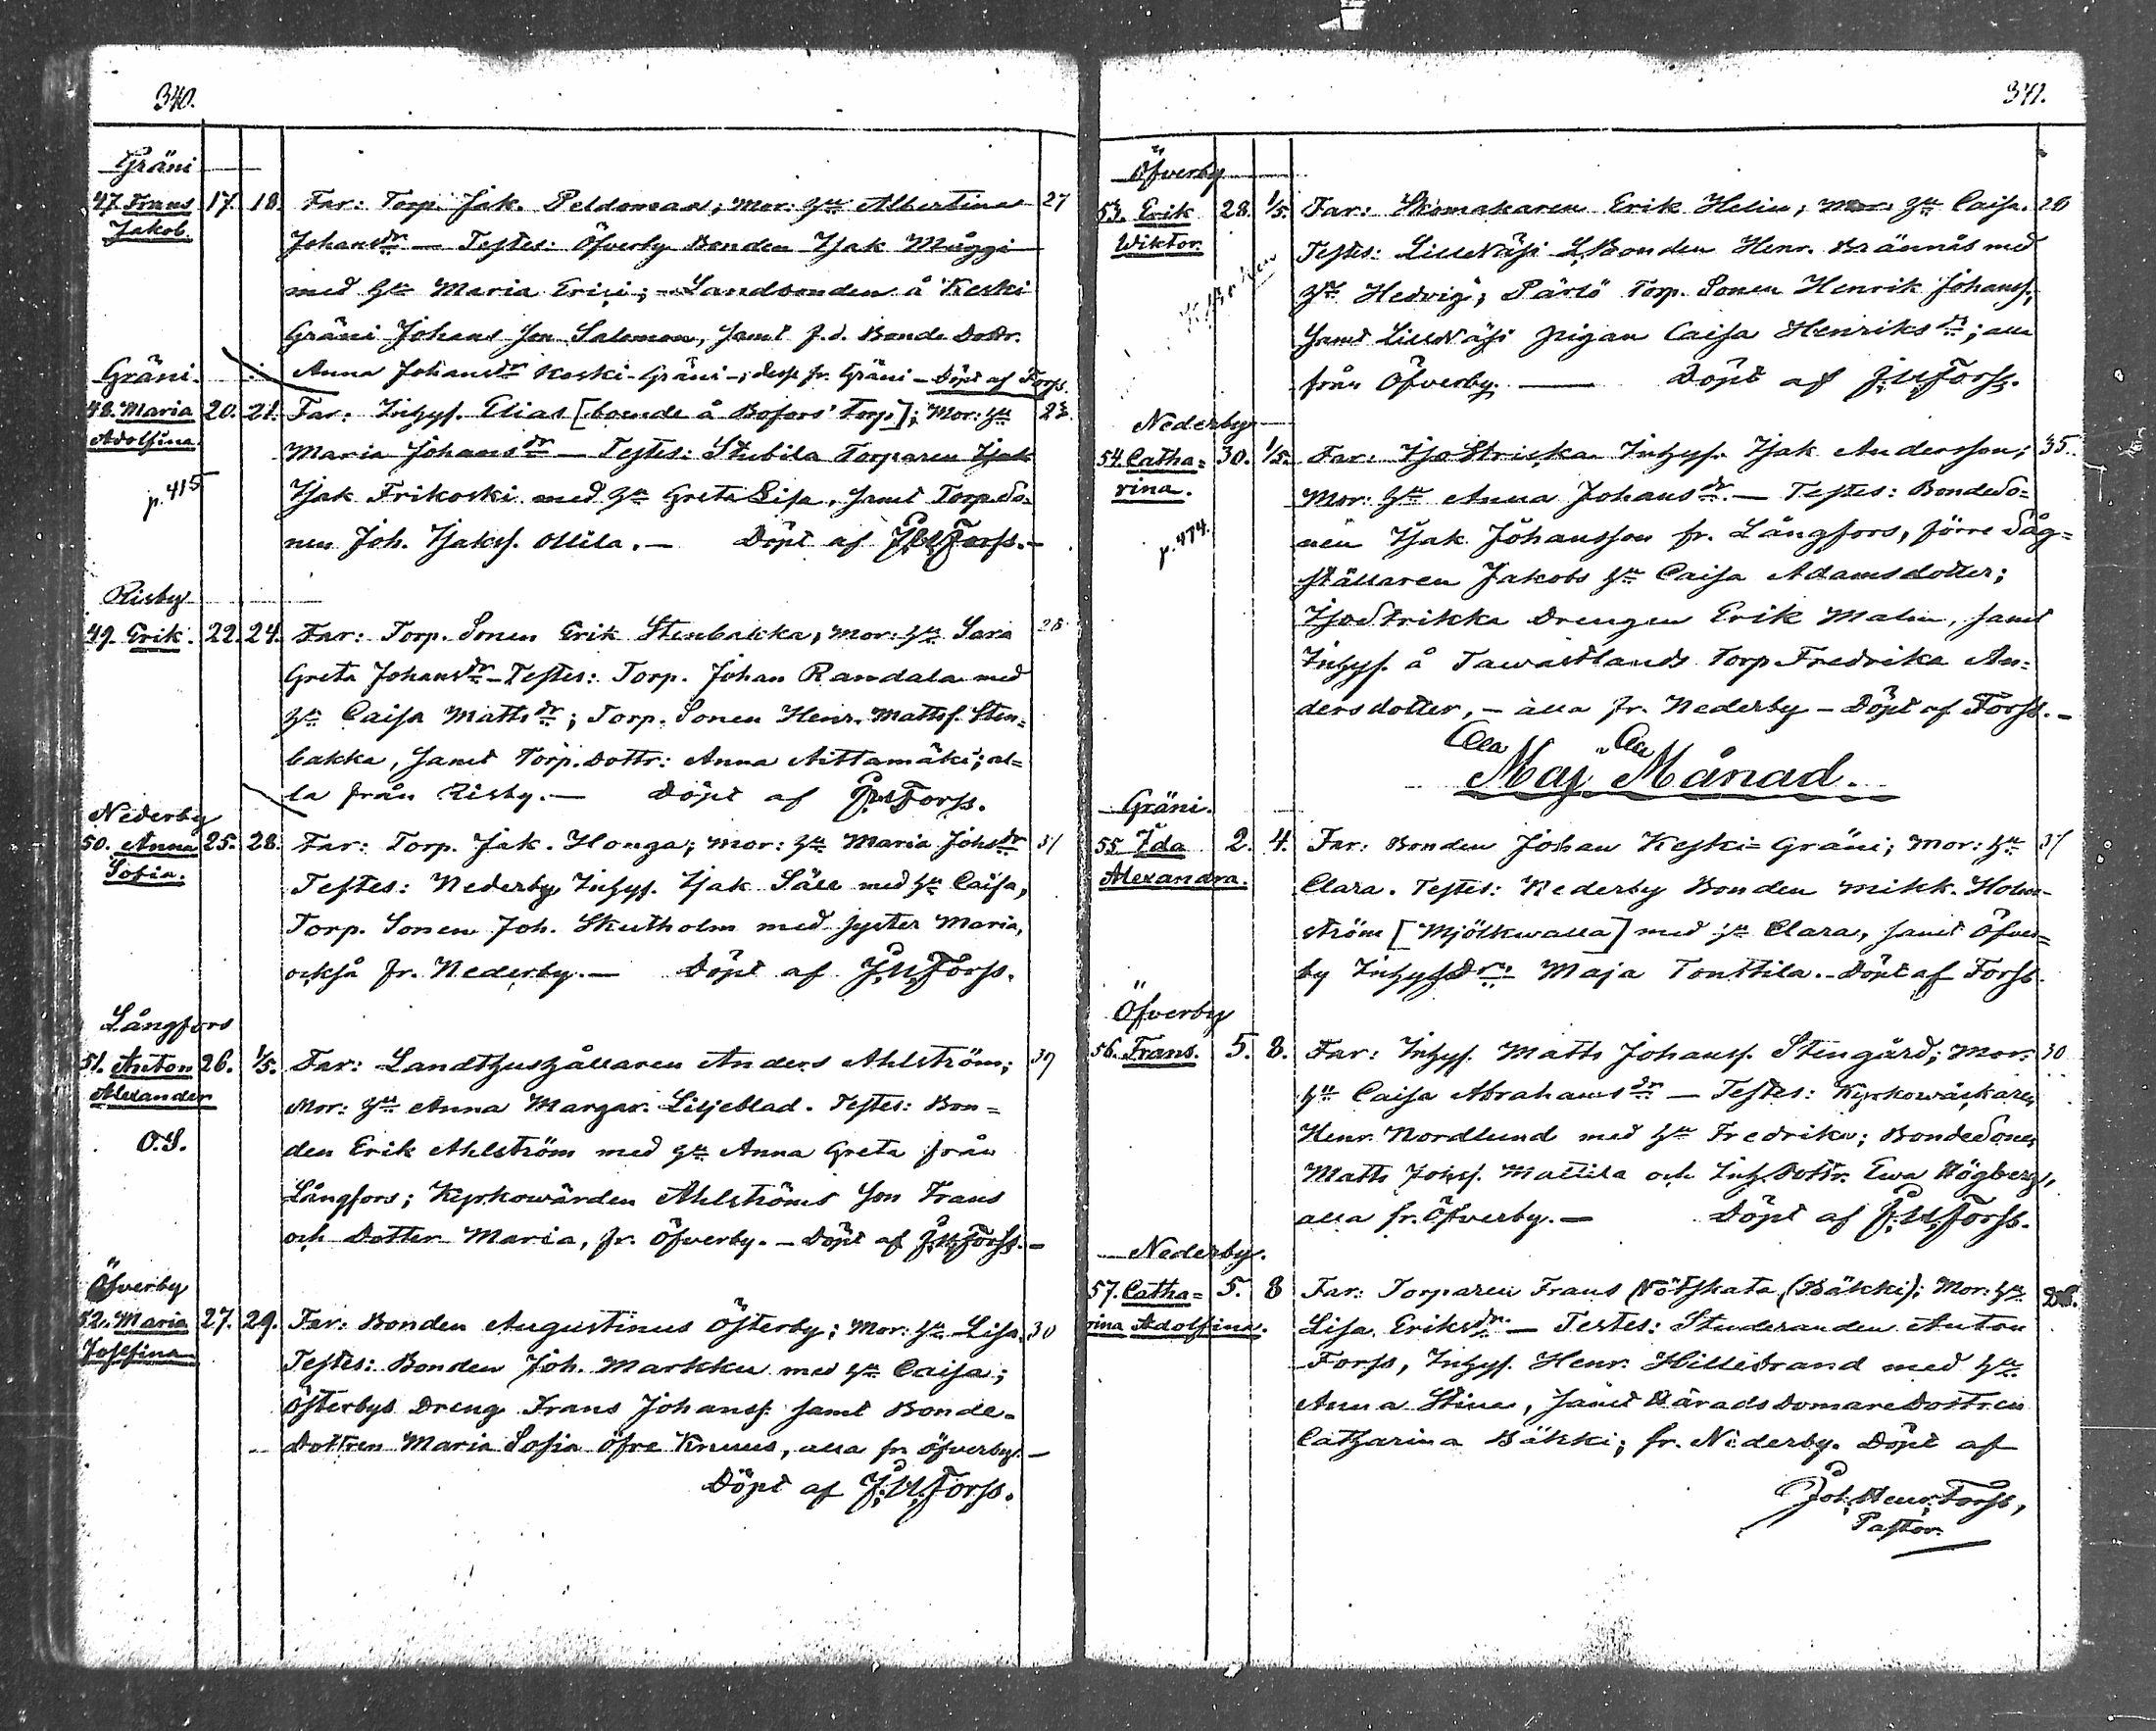 340.
Gräni
47. Frans Jakob. 17. 18. Far: Torp. Jak. Peldoman; Mor: Hu Albertina 27
Johansdr — Testes: Öfverby Bonden Isak Muggi
med Hu Maria Erici; Landbonden å Keski
Gräni Johans Son Salomon, samt f.d. Bonde Dottr.
Anna Johansdr Keski-Gräni; desse fr. Gräni - Döpt af Forss.
Gräni.
48. Maria Adolfina. 20. 21. Far: Inhys. Elias [boende å Bofors' Torp]; Mor: Hu 23.
Maria Johansdr — Testes: Stubila Torparen Isak
p. 415 Isak Frikoski med Hu Greta Lisa, samt TorpSo-
nen Joh. Isakss. Ollila. — Döpt af J.H. Forss. —
Risby
49. Erik. 22. 24. Far: Torp. Sonen Erik Stenbakka, Mor: Hu Sara 28
Greta Johansdr - Testes: Torp. Johan Randala med
Hu Caisa Mattsdr; Torp. Sonen Henr. Mattss. Sten=
bakka, samt Torp. dottr: Anna Aittamäki; al=
la från Risby. — Döpt af J.H. Forss.
Nederby
50. Anna Sofia. 25. 28. Far: Torp. Jak. Honga; Mor: Hu Maria Johsdr 31
Testes: Nederby Inhys. Isak Säll med Hu Caisa,
Torp. Sonen Joh. Skutholm med syster Maria,
också fr. Nederby. — Döpt af J.H. Forss.
Långfors
51. Anton Alexander 26. 1/5. Far: Landthushållaren Anders Ahlström; 37
Mor: Hu Anna Margar. Liljeblad. Testes: Bon=
O.S. den Erik Ahlström med Hu Anna Greta från
Långfors; Kyrkowärden Ahlströms Son Frans
och Dotter Maria, fr. Öfverby. — Döpt af J.H. Forss. —
Öfverby
52. Maria Josefina 27. 29. Far: Bonden Augustinus Österby; Mor: Hu Lisa. 30
Testes: Bonden Joh. Markku med Hu Caisa;
Österbys Dreng Frans Johanss. samt Bonde-
dottren Maria Sofia Öfre Knuus, alla fr. Öfverby. —
Döpt af J.H. Forss.
341.
Öfverby
53. Erik Wiktor. 28. 1/5. Far: Skomakaren Erik Helin; Mor: Hu Caisa. 26
Testes: LillNäsi LBonden Henr. Brännås med
Hu Hedvig; Pärlö Torp. Sonen Henrik Johanss,
samt LillNäsi pigan Caisa Henriksdr; alla
från Öfverby. — Döpt af J.H. Forss.
Nederby
54. Catha=rina. 30. 1/5. Far: IsoStricka Inhys. Isak Andersson; 35.
Mor: Hu Anna Johansdr. — Testes: BondeSo=
p. 474. nen Isak Johansson fr. Långfors, förre Såg=
ställaren Jakobs Hu Caisa Adamsdotter;
IsoStrikka Drengen Erik Malin, samt
Inhys. å Tawastlands Torp Fredrika An=
dersdotter, — alla fr. Nederby — Döpt af Forss. —
Maj Månad.
Gräni.
55. Ida Alexandra. 2. 4. Far: Bonden Johan Keski=Gräni; Mor: Hu 31
Clara. Testes: Nederby Bonden Mikk. Holm-
ström [Mjölkwalla] med Hu Clara, samt Öfver=
by InhysDr. Maja Tonttila. - Döpt af Forss.
Öfverby
56. Frans. 5. 8. Far: Inhys. Matts Johanss. Stengård; Mor: 30
Hu Caisa Abrahamsdr — Testes: Kyrkowäckaren
Henr. Nordlund med Hu Fredrika; BondeSonen
Matts Johss. Mattila och Inh. Dottr. Ewa Högberg,
alla fr. Öfverby. — Döpt af J.H. Forss.
Nederby.
57. Catha=rina Adolfina. 5. 8 Far: Torparen Frans Nötskata (Bäkki); Mor: Hu
Lisa Eriksdr. — Testes: Studeranden Anton
Forss, Inhys. Henr. Hillebrand med Hu
Anna Stina, samt HäradsdomareDottren
Catharina Bäkki; fr. Nederby. Döpt af
Joh. Henr. Forss,
Pastor.